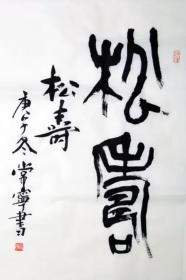 松壽
松壽
庚午冬常寧書